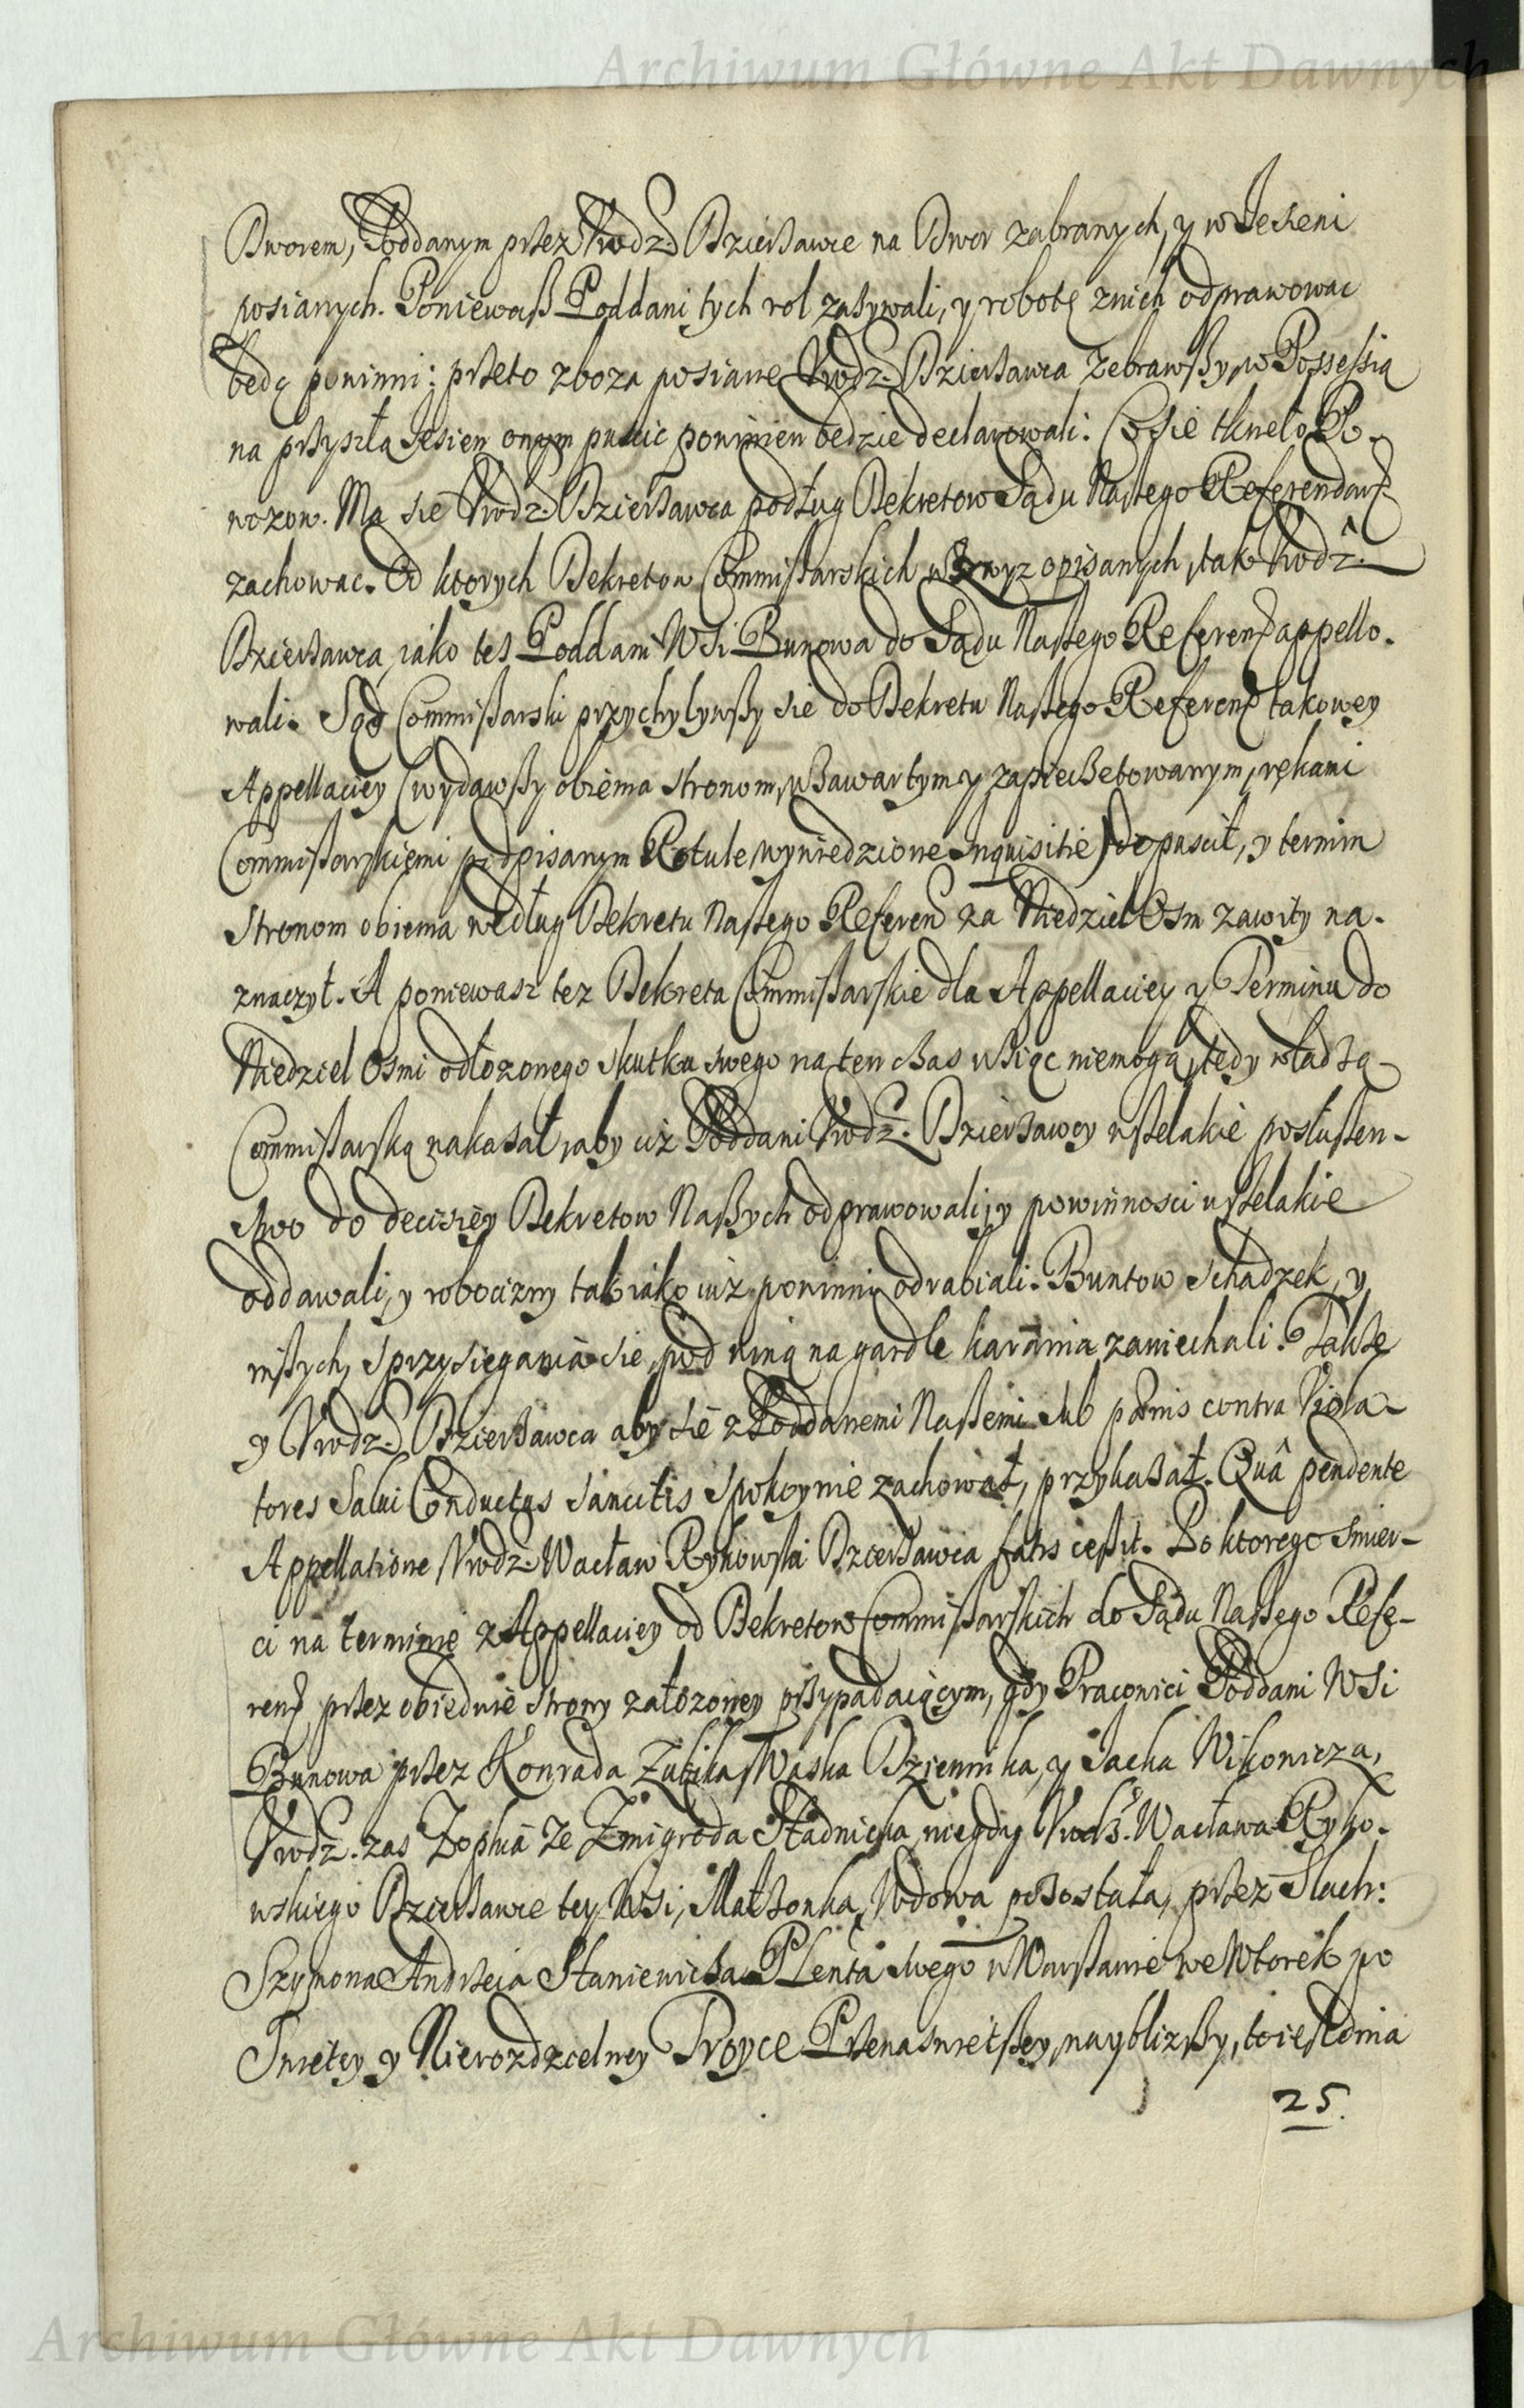 Archiwum Główne Akt Dawnych
Dworem, Poddanym przez Vrodz. Dzierżawcę na Dwor zabranych, y w Jeseni
posianych. Poniewaß Poddani tych rol zażywali, y robotę znich odprawowac
będą powinni; przeto zboza posiane Vrodz. Dzierżawca zebrawßy, w Possessią
na przyszłą Jesien onym puscic powinien będzie declarowali. Co sie tkneło Po-
wozow. Ma sie Vrodz. Dzierżawca podług Dekretow Sądu Naßego Referendars
zachowac. Od ktorych Dekretow Commißarskich wzwyz opisanych, tak Vrodz.
Dzierżawca, iako tes Poddani Wsi Bunowa do Sądu Naßego Referen appello-
wali. Sąd Commißarski przychylywßy sie do Dekretu Naßego Referen takowey
Appellaciey (wydawßy obiema stronom, w zawartym y zapieczetowanym, rękami
Commißarskiemi podpisanym Rotule wywiedzione Inquisitie) dopuscił, y termin
Stronom obiema według Dekretu Naßego Referen za Niedziel Osm zawity na-
znaczył. A poniewasz tez Dekreta Commißarskie dla Appellaciey y Terminu do
Niedziel Osmi odłozonego skutku swego na ten czas wziąc niemogą, tedy władzą
Commißarską nakazał, aby iuż Poddani Vrodz. Dzierżawcy wßelakie posłußen-
stwo do decisiey Dekretow Naßych odprawowali, y powinnosci wßelakie
oddawali, y robocizny tak iako iuż powinni odrabiali. Buntow schadzek, y
inßych, sprzysiegania sie, pod winą na gardle karania zaniechali. Także
y Vrodz. Dzierżawca aby sie z Poddanemi Naßemi sub pœnis contra Viola-
tores Salui Conductus sancitis spokoynie zachował, przykazał. Quâ pendente
Appellatione Vrodz. Wacław Rykowski Dzierżawca fatis ceßit. Po ktorego smier-
ci na terminie z Appellaciey od Dekretow Commißarskich do Sądu Naßego Refe-
ren przez obiedwie strony założoney przypadaiącym, gdy Pracowici Poddani Wsi
Bunowa przez Konrada Waska Dziennika, y Jacka Wikowicza,
Vrodz. zas Zophia ze Zmigroda Stadnicka, niegdy Vrodz. Wacława Ryko-
wskiego Dzierżawce tey Wsi, Małżonka, Wdowa pozostała, przez Slach:
Szymona Andrzeia Staniewicza Plenta swego w Warßawie we Wtorek po
Swiętey y Nierozdzelney Troyce Przenaswiętßey, naybliżßy, to iest dnia
25.
Archiwum Główne Akt Dawnych